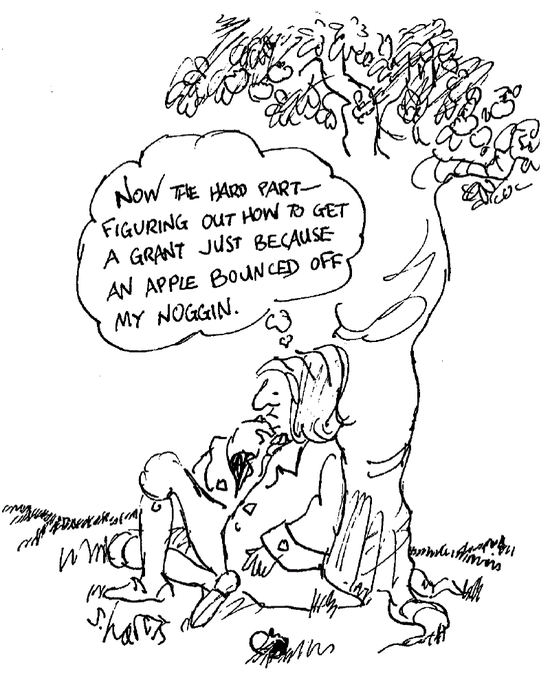 NOW THE HARD PART—
FIGURING OUT HOW TO GET
A GRANT JUST BECAUSE
AN APPLE BOUNCED OFF
MY NOGGIN.
S. Harris